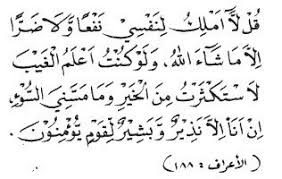 قُلْ لَّآ اَمْلِكُ لِنَفْسِيْ نَفْعًا وَّلَا ضَرًّا
اِلَّا مَا شَآءَ اللّٰهُ، وَلَوْ كُنْتُ اَعْلَمُ الْغَيْبَ
لَاسْتَكْثَرْتُ مِنَ الْخَيْرِ وَمَا مَسَّنِيَ السُّوْٓءُ،
اِنْ اَنَا اِلَّا نَذِيْرٌ وَّبَشِيْرٌ لِّقَوْمٍ يُّؤْمِنُوْنَ.
(الأعراف : ١٨٨)